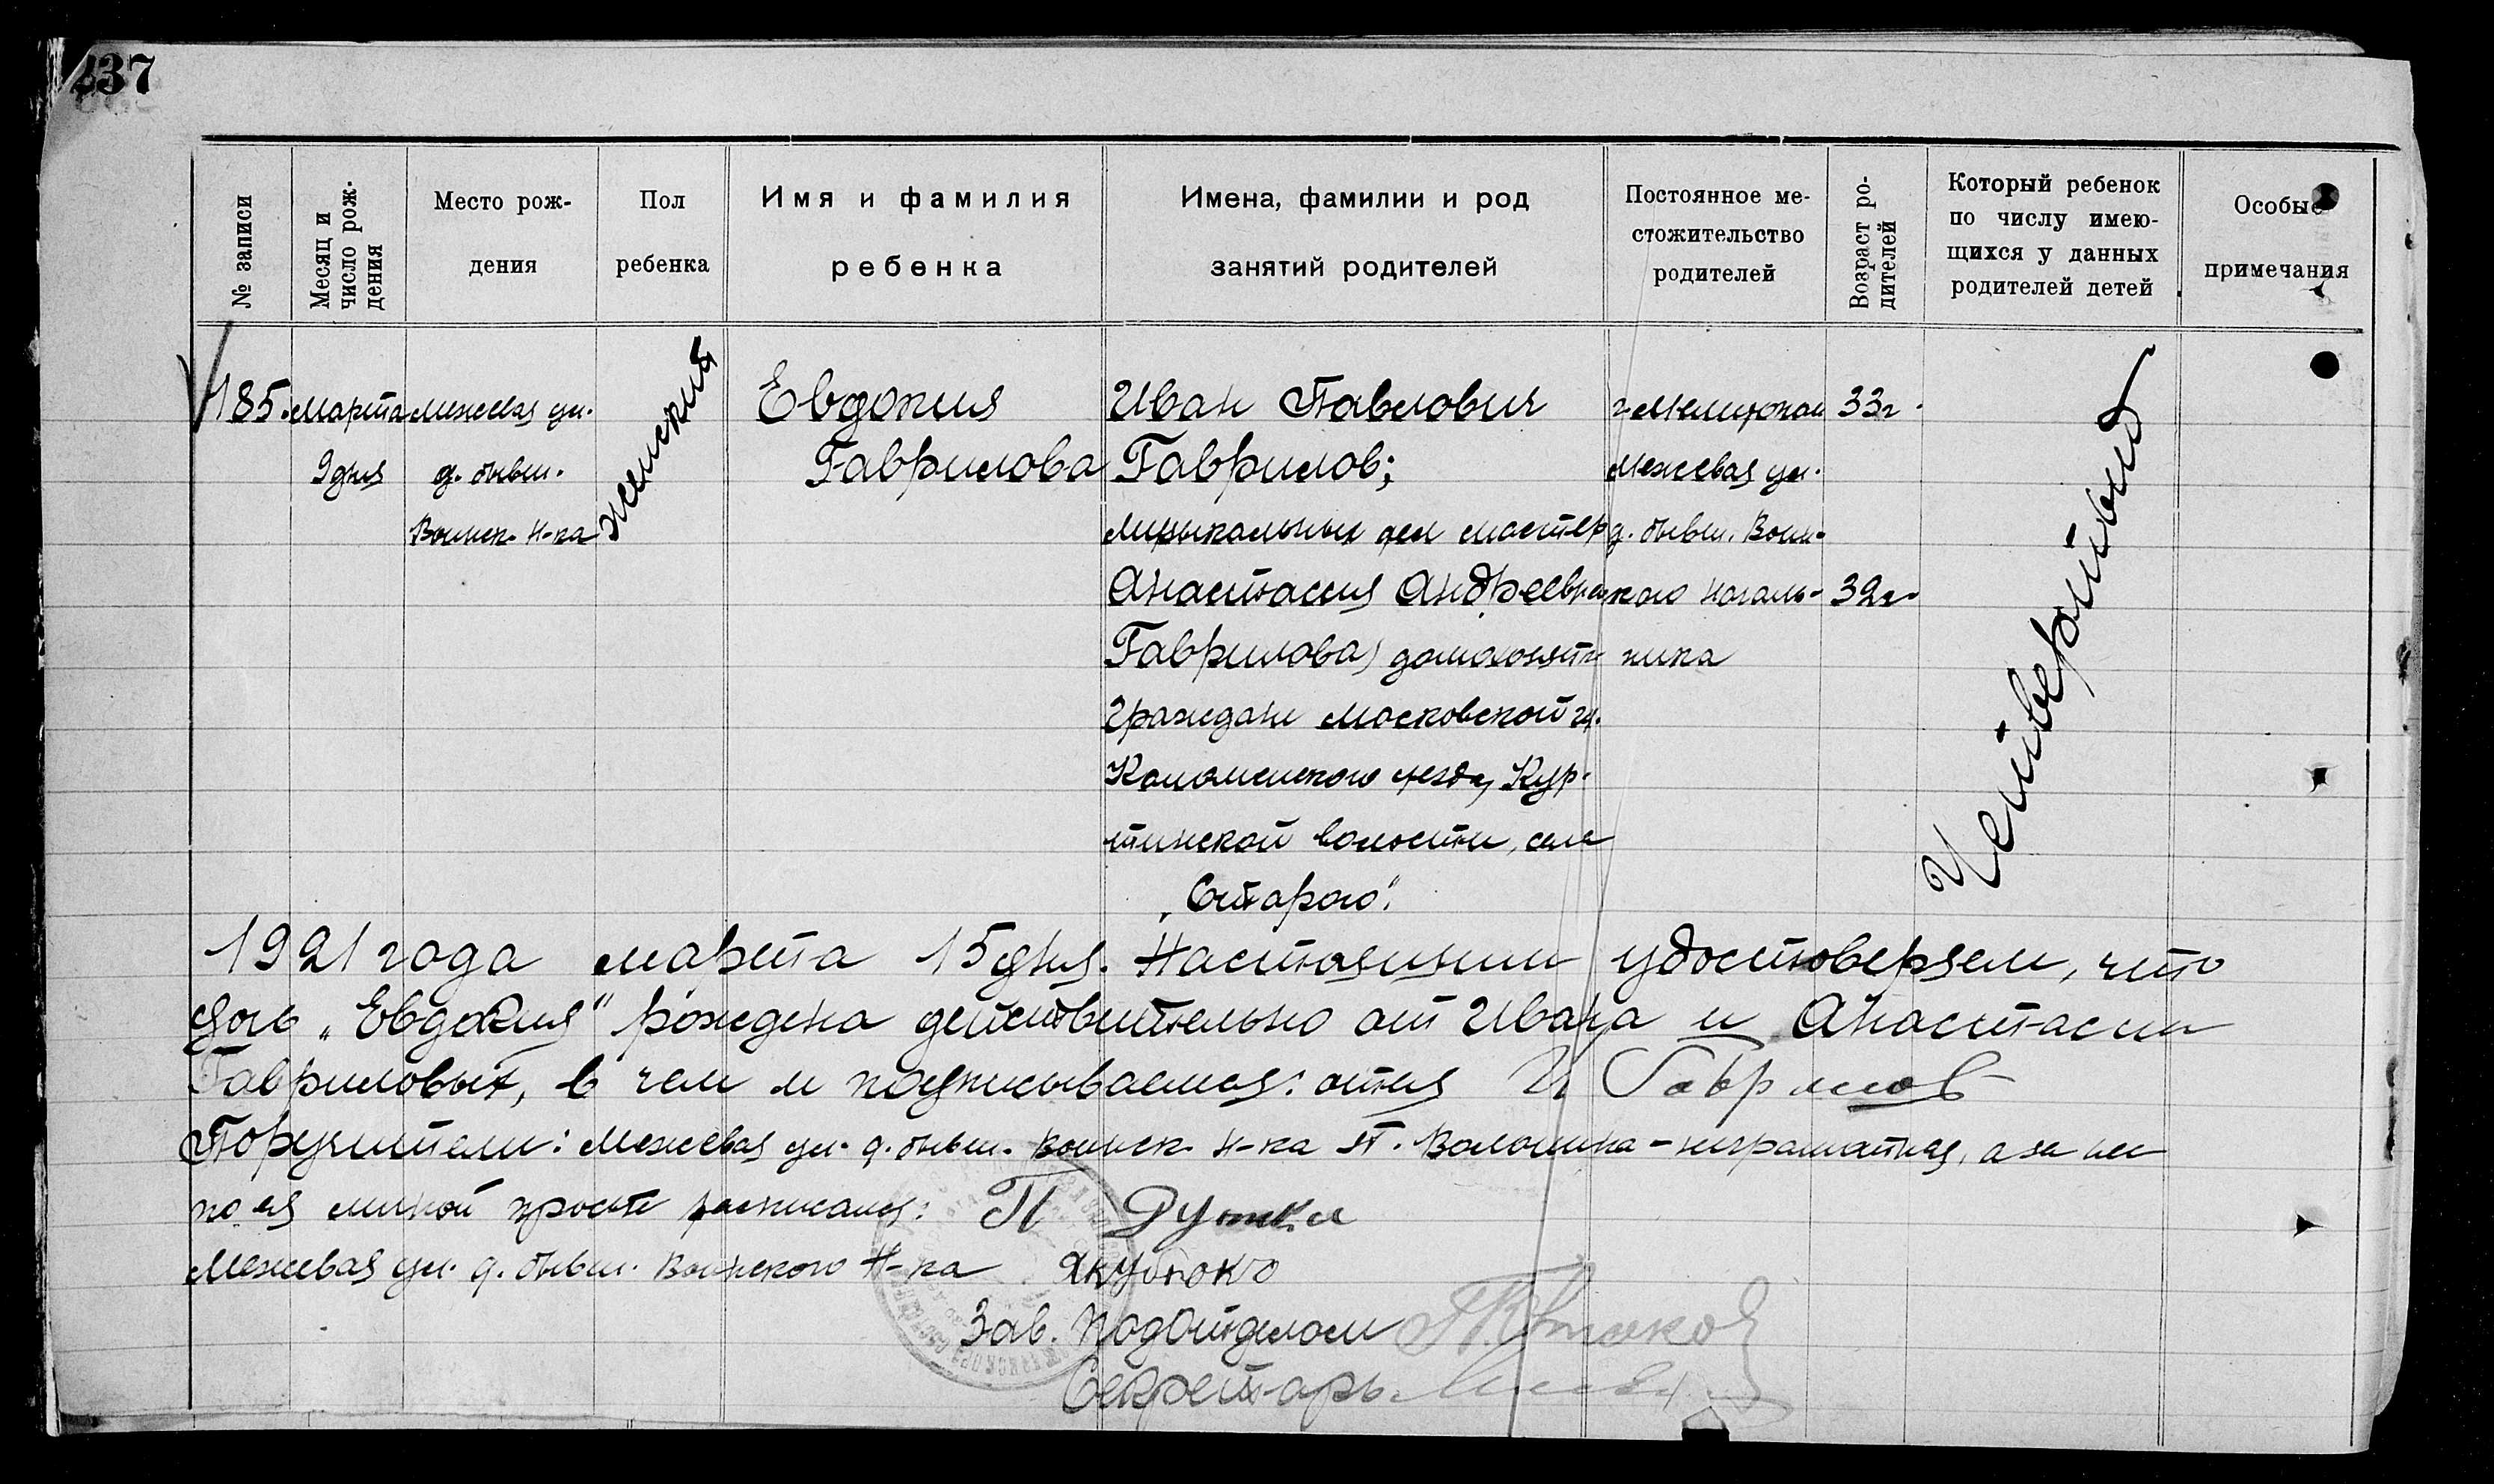 237
№ записи
Месяц и
число рож-
дения
Место рож-
дения
Пол
ребенка
Имя и фамилия
ребенка
Имена, фамилии и род
занятий родителей
Постоянное ме-
стожительство
родителей
Возраст ро-
дителей
Который ребенок
по числу имею-
щихся у данных
родителей детей
Особые
примечания
185.
марта
9 дня
Межевая ул.
д. бывш.
Воинск. Н-ка
женский
Евдокия
Гаврилова
Иван Павлович
Гаврилов;
музыкальных дел мастер
Анастасия Андреевна
Гаврилова,
граждане Московской г.
Коломенского уезда, Кур-
тинской волости, села
„Старого".
г. Мелитополь
Межевая ул.
д. бывш. Воин-
кого Началь-
ника
33 г.
32 г.
Четвертый
1921 года марта 15 дня. Настоящим удостоверяем, что
дочь „Евдокия" рождена действительно от Ивана и Анастасии
Гавриловых, в чем и подписываемся: отец И Гаврилов
Поручители: Межевая ул. д. бывш. Воинск. Н-ка П. Волошина - неграмотная, а за нее
по ея личной просьбе расписался: П
Межевая ул. д. бывш. Воинского Н-ка
Зав. Подотделом
Секретарь